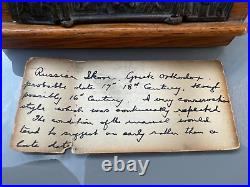 Russian Ikon. Greek Orthodox
probable date 17th 18th Century, though
possibly 16th Century. A very conservative
style which was continually repeated
The condition of the enamel would
tend to suggest an early rather than a
late date